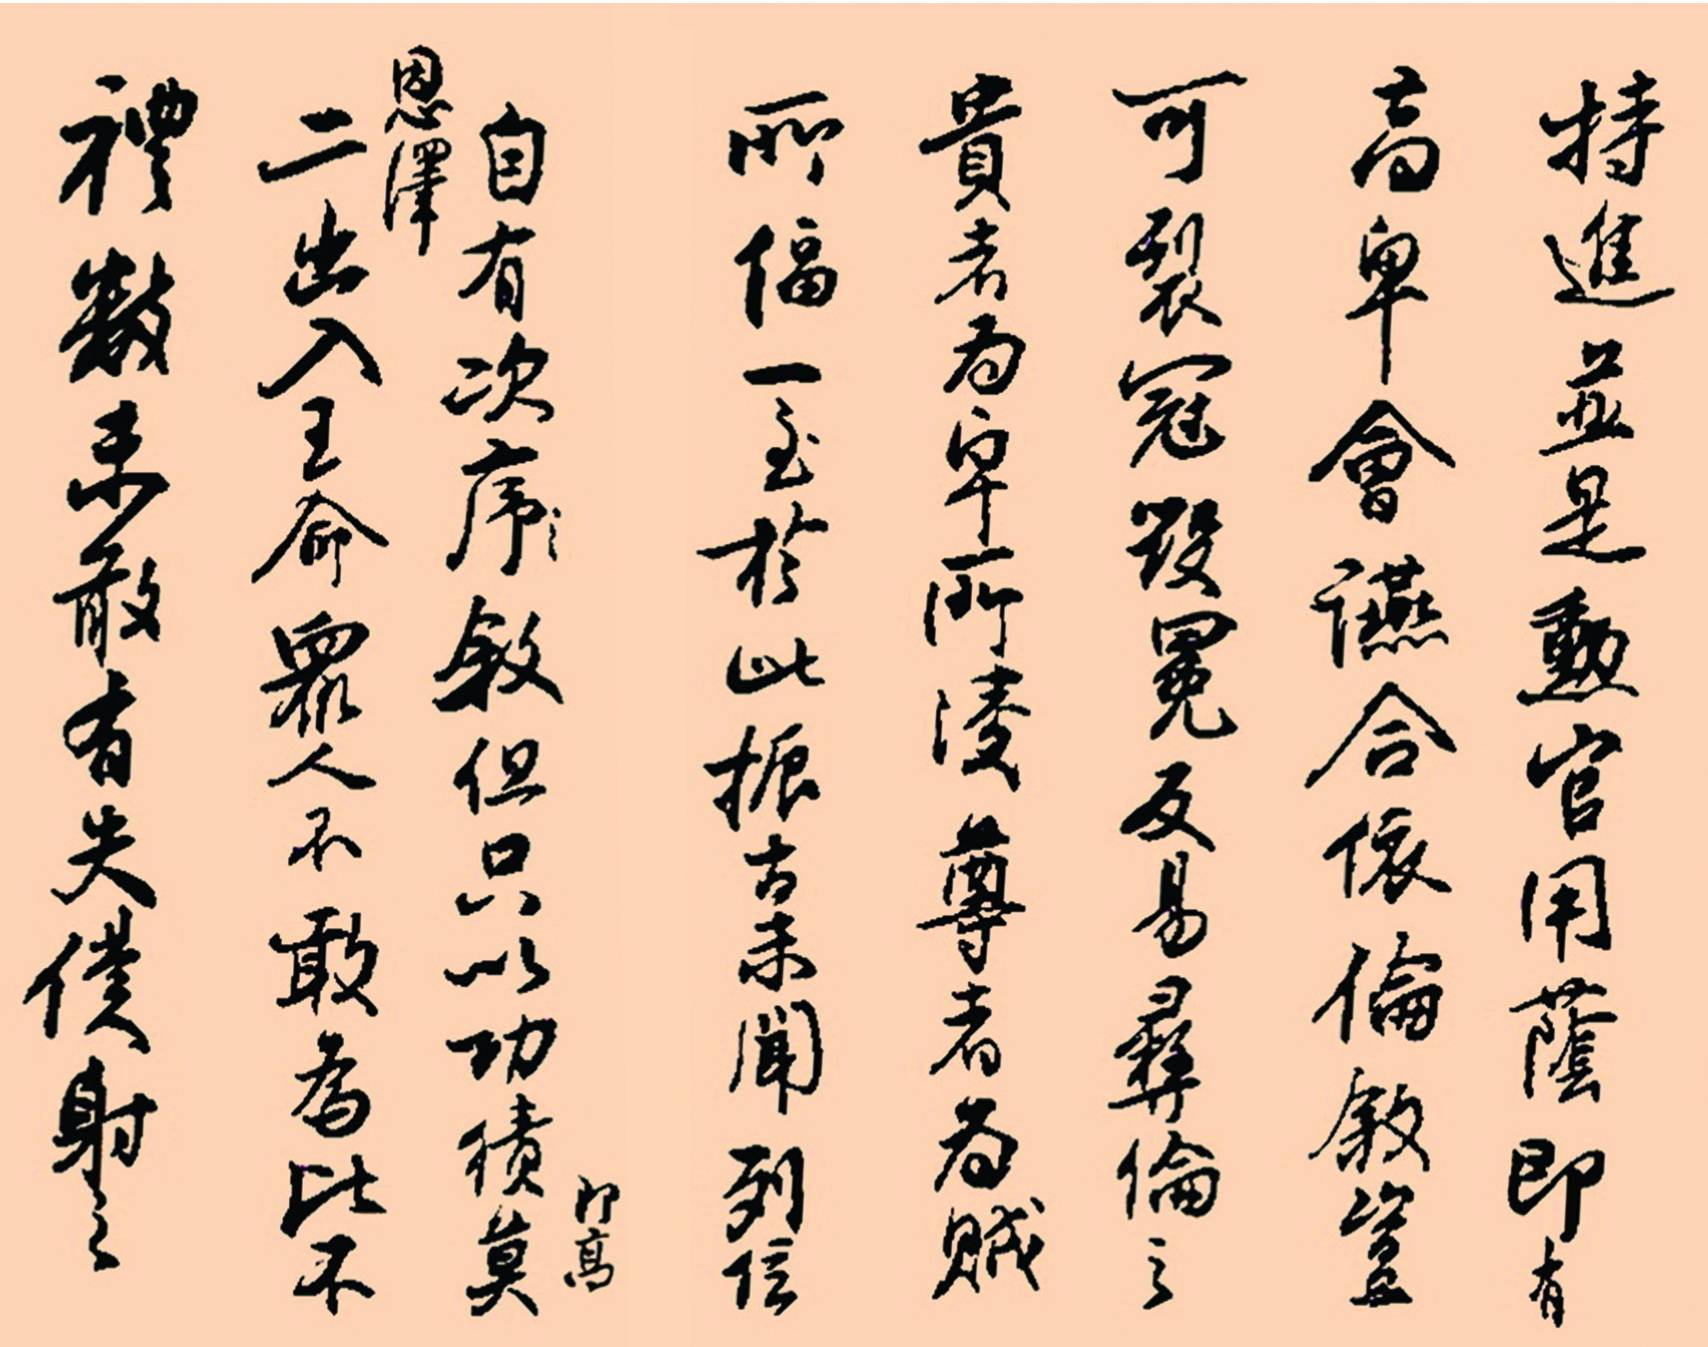 特進並是勳官用蔭即有
高卑會讌合依倫敘豈
可裂冠毀冕反易彝倫之
貴者為卑所凌尊者為賊
所偪一至於此振古未聞列位
自有次序敘但只以功績莫
既高
恩澤
二出入王命眾人不敢為比不
禮數未敢有失僕射之